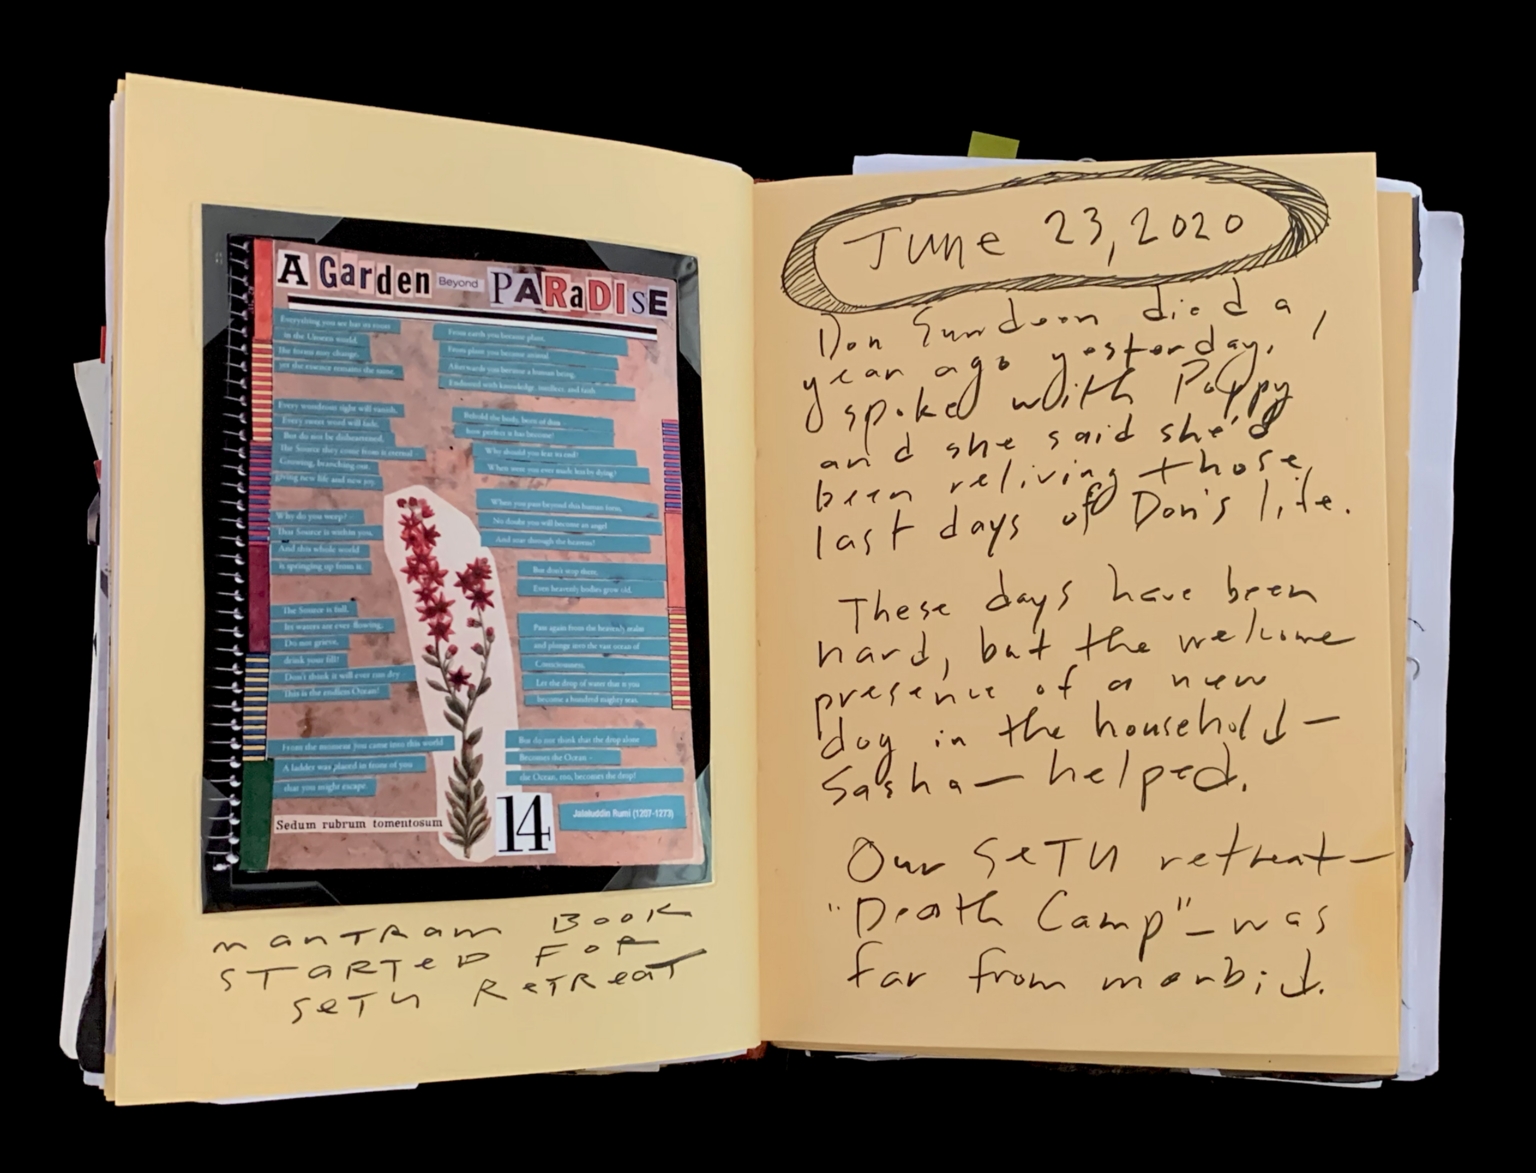 A Garden Beyond PARaDISE
Everything you see has its roots
in the Unseen world.
The forms may change,
yet the essence remains the same.
Every wondrous sight will vanish,
Every sweet word will fade.
But do not be disheartened,
The Source they come from is eternal
Growing, branching out,
giving new life and new joy.
Why do you weep?
That Source is within you,
And this whole world
is springing up from it.
The Source is full,
Its waters are ever flowing,
Do not grieve,
drink your fill!
Don't think it will ever run dry
This is the endless Ocean!
From the moment you came into this world
A ladder was placed in front of you
that you might escape.
From earth you became plant,
From plant you became animal.
Afterwards you became a human being,
Endowed with knowledge, intellect, and faith.
Behold the body, born of dust
how perfect it has become!
Why should you fear its end?
When were you ever made less by dying?
When you pass beyond this human form,
No doubt you will become an angel
And soar through the heavens!
But don't stop there,
Even heavenly bodies grow old.
Pass again from the heavenly realm
and plunge into the vast ocean of
Consciousness.
Let the drop of water that is you
become a hundred mighty seas.
But do not think that the drop alone
Becomes the Ocean -
the Ocean, too, becomes the drop!
Jalaluddin Rumi (1207-1273)
Sedum rubrum tomentosum
14
MANTRAM BOOK
STARTED FOR
SETU RETREAT
June 23, 2020
Don died a
year ago yesterday. I
spoke with Poppy
and she said she'd
been reliving those
last days of Don's life.
These days have been
hard, but the welcome
presence of a new
dog in the household—
Sasha—helped.
Our SETU retreat—
"Death Camp"—was
far from morbid.